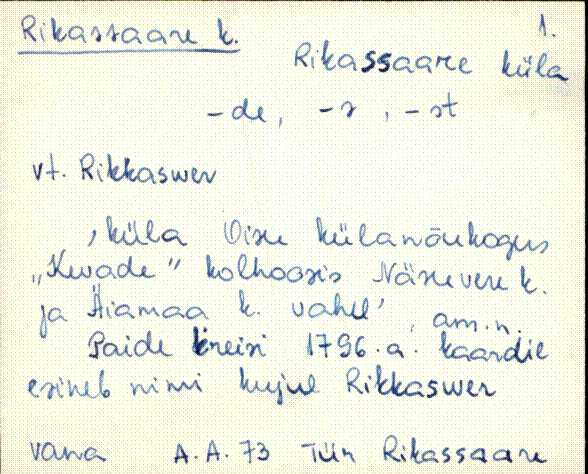 Rikassaare k.
1.
Rikassaare küla
-de, -s, -st
vt. Rikkaswer
'küla Oisu külanõukogus
„Kevade” kolhoosis Näsuvere k.
ja Äiamaa k. vahel', am.n.
Paide kreisi 1796.a. kaardil
esineb nimi kujul Rikkaswer
vana A.A. 73 Tür Rikassaare